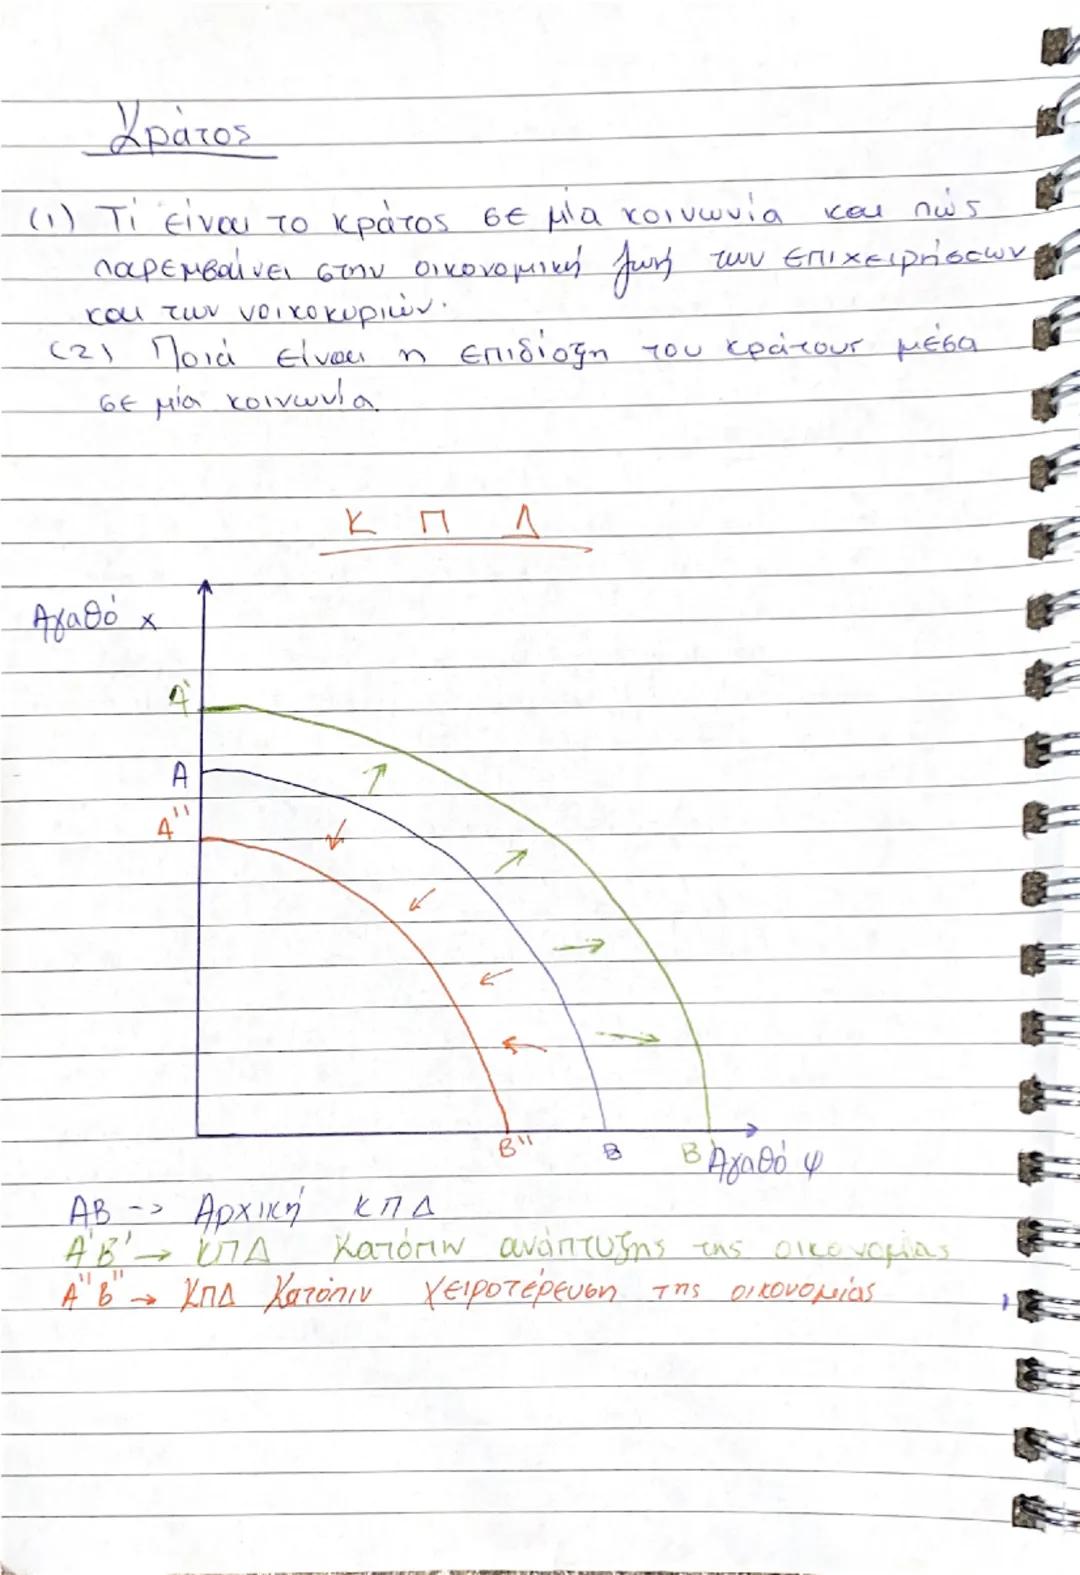 Κράτος
(1) Τί είναι το κράτος σε μία κοινωνία και πώς
παρεμβαίνει στην οικονομική ζωή των επιχειρήσεων
και των νοικοκυριών.
(2) Ποιά είναι η επιδίοξη του κράτους μέσα
σε μία κοινωνία.
Κ Π Δ
Αγαθό χ
Α'
Α
Α''
Β'' Β Β' Αγαθό ψ
ΑΒ -> Αρχική ΚΠΔ
Α'Β' → ΚΠΔ Κατόπιν ανάπτυξης της οικονομίας
Α''Β'' → ΚΠΔ Κατόπιν χειροτέρευση της οικονομίας